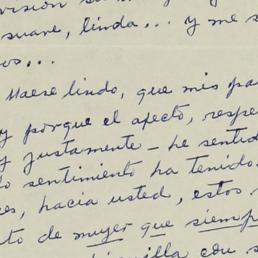 visión su
suave, linda... y me s
os...
Maese lindo, que mis pa
y porque el afecto, respe
y justamente – he sentid
lo sentimiento ha tenido.
es, hacia usted, estos
to de mujer que siemp
illa con s